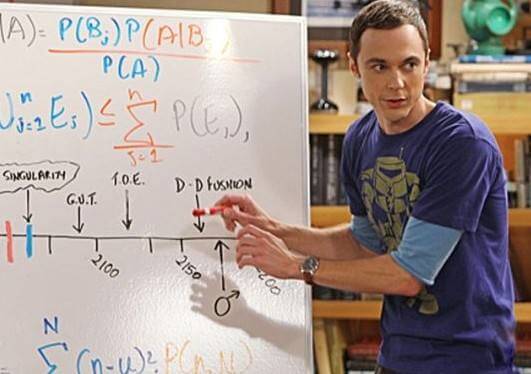 |A) = P(Bj) P(A|B
P(A)
Uⁿj=1 Ej) ≤ Σⁿj=1 P(Ej),
SINGULARITY
G.U.T. T.O.E. D-D FUSHION
2100 2150 200
♂
N
Σ (n-u)²·P(n, N)